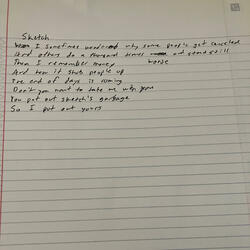 Sketch
I sometimes wonder why some people get canceled
And others do a thousand times and stand still
worse
Then I remember money
And how it shuts people up
The end of days is coming
Don't you want to take me with you
You put out sketch's garbage
So I put out yours